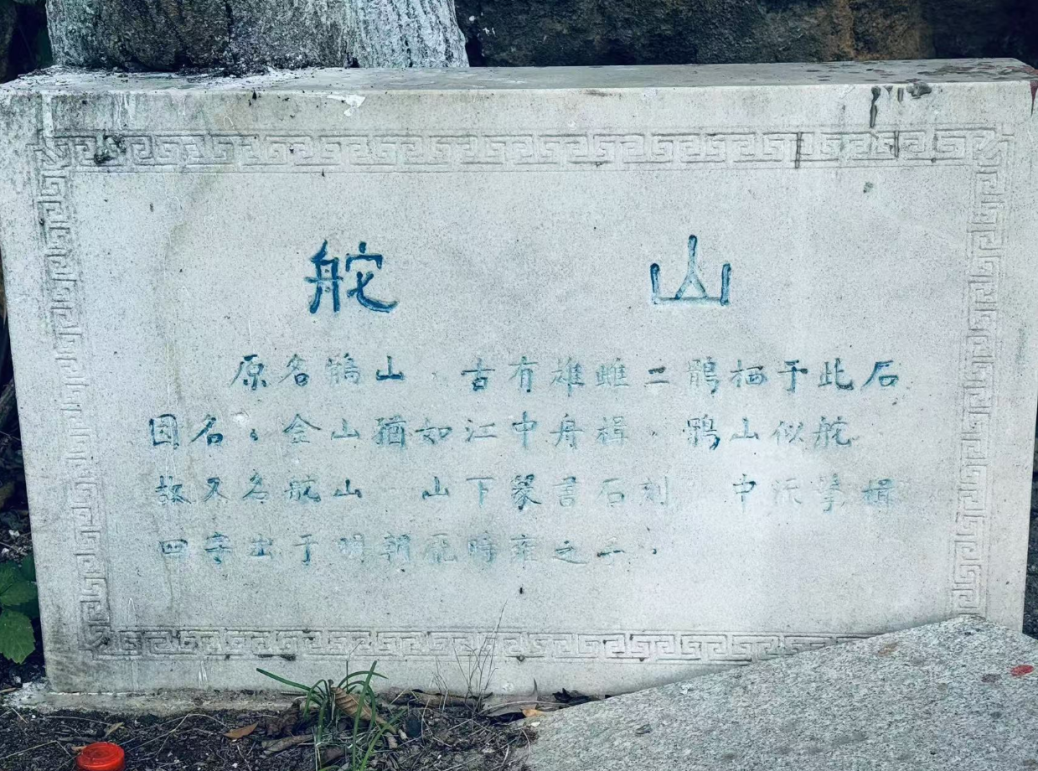 舵 山
原名鶻山、古有雄雌二鶻栖于此石
因名。金山猶如江中舟楫，鶻山似舵
故又名舵山 山下篆書石刻 中流擊楫
四字出于明朝時雍之手。